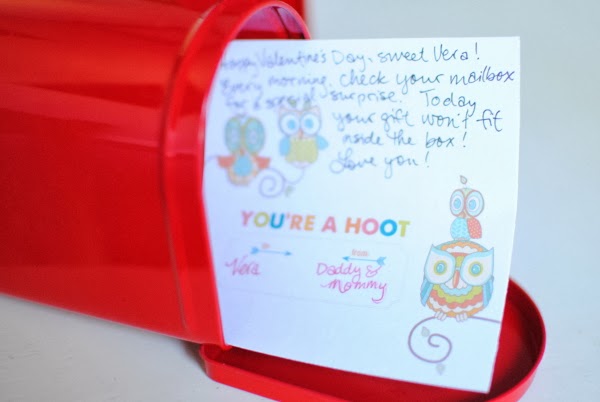 Happy Valentine's Day, sweet Vera!
Every morning, check your mailbox
for a special surprise. Today
your gift won't fit
inside the box!
Love you!
YOU'RE A HOOT
to from
Vera Daddy &
Mommy